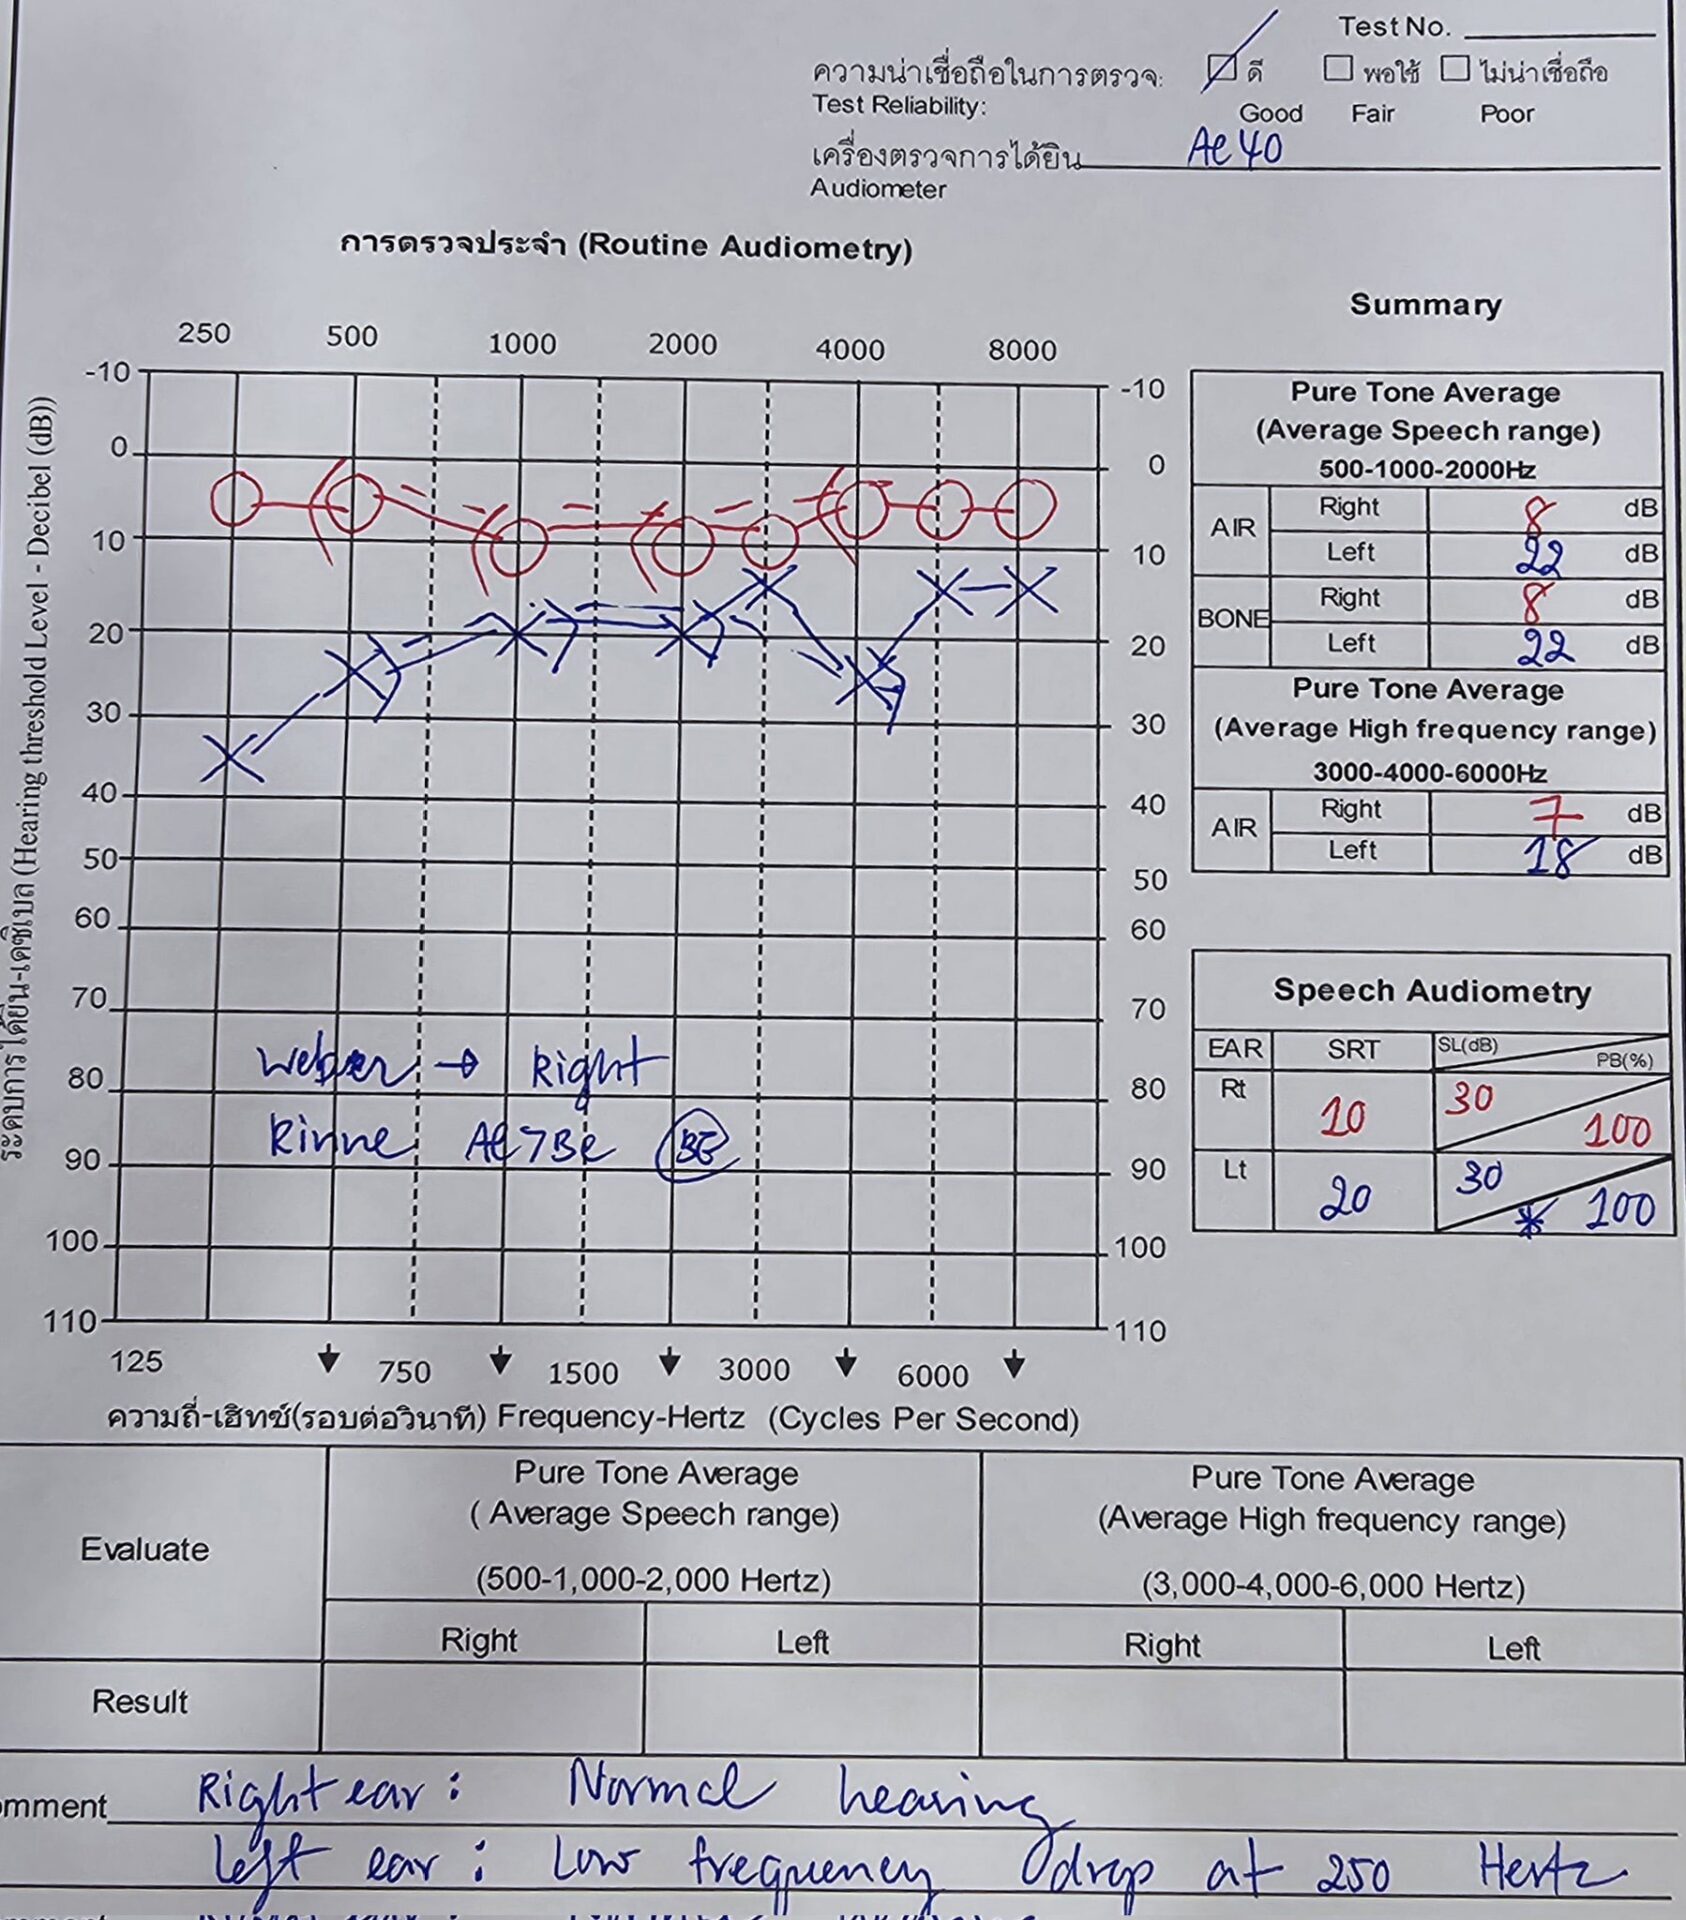 Test No.
ความน่าเชื่อถือในการตรวจ: ดี พอใช้ ไม่น่าเชื่อถือ
Test Reliability: Good Fair Poor
เครื่องตรวจการได้ยิน AC 40
Audiometer
การตรวจประจำ (Routine Audiometry)
Summary
250 500 1000 2000 4000 8000
-10 -10
0 0
10 10
20 20
30 30
40 40
50 50
60 60
70 70
80 80
90 90
100 100
110 110
ระดับการได้ยิน-เดซิเบล (Hearing threshold Level - Decibel (dB))
Weber → Right
Rinne AC>BC BE
125 750 1500 3000 6000
ความถี่-เฮิทซ์(รอบต่อวินาที) Frequency-Hertz (Cycles Per Second)
Pure Tone Average
(Average Speech range)
500-1000-2000Hz
AIR Right 8 dB
Left 22 dB
BONE Right 8 dB
Left 22 dB
Pure Tone Average
(Average High frequency range)
3000-4000-6000Hz
AIR Right 7 dB
Left 18 dB
Speech Audiometry
EAR SRT SL(dB) PB(%)
Rt 10 30 100
Lt 20 30 * 100
Evaluate
Pure Tone Average
( Average Speech range)
(500-1,000-2,000 Hertz)
Pure Tone Average
(Average High frequency range)
(3,000-4,000-6,000 Hertz)
Right Left Right Left
Result
omment Right ear : Normal hearing
Left ear : Low frequency drop at 250 Hertz